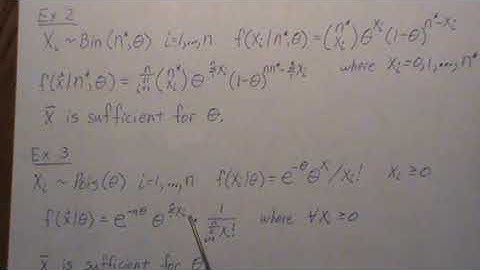 Ex 2
Xᵢ ~ Bin (n*, θ) i=1,...,n f(xᵢ|n*,θ) = (n* xᵢ) θ^xᵢ (1-θ)^(n*-xᵢ)
where xᵢ=0,1,...,n*
f(x̃|n*,θ) = ∏ᵢ₌₁ⁿ (n* xᵢ) θ^(Σxᵢ) (1-θ)^(nn*-Σxᵢ)
x̄ is sufficient for θ.
Ex 3
Xᵢ ~ Pois(θ) i=1,...,n f(xᵢ|θ) = e^(-θ) θ^xᵢ / xᵢ! xᵢ ≥ 0
f(x̃|θ) = e^(-nθ) θ^(Σxᵢ) 1/∏ᵢ₌₁ⁿ xᵢ! where ∀xᵢ ≥ 0
x̄ is sufficient for θ